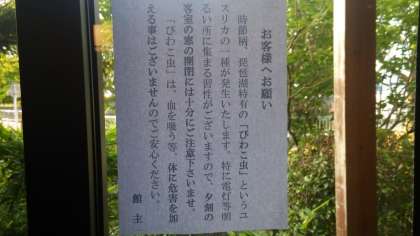 お客様へお願い
時節柄、琵琶湖特有の「びわこ虫」というユ
スリカの一種が発生いたします。特に電灯等明
るい所に集まる習性がございますので、夕刻の
客室の窓の開閉には十分にご注意下さいませ。
「びわこ虫」は、血を吸う等、体に危害を加
える事はございませんのでご安心ください。
館主